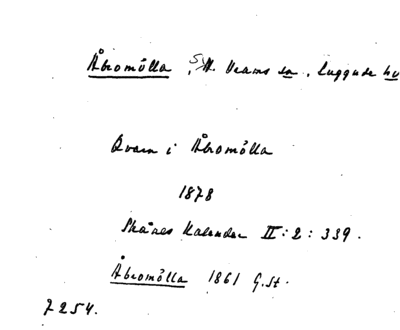 Åbromölla, St. Vrams sn, Luggude hd
Qvarn i Åbromölla
1878
Skånes Kalender II:2:339.
Åbromölla 1861 G.St.
7254.